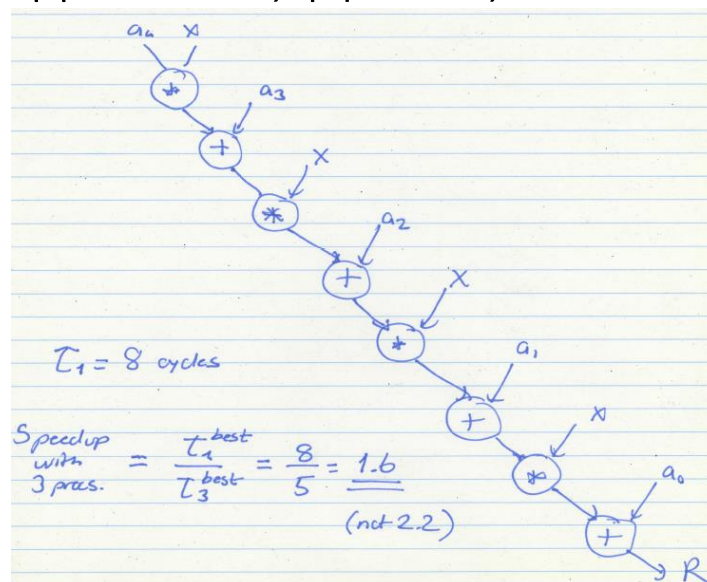 a₄ x
*
a₃
+
x
*
a₂
+
x
*
T₁ = 8 cycles
a₁
+
x
Speedup with 3 procs. = T₁^best / T₃^best = 8/5 = 1.6
*
(not 2.2)
a₀
+
R